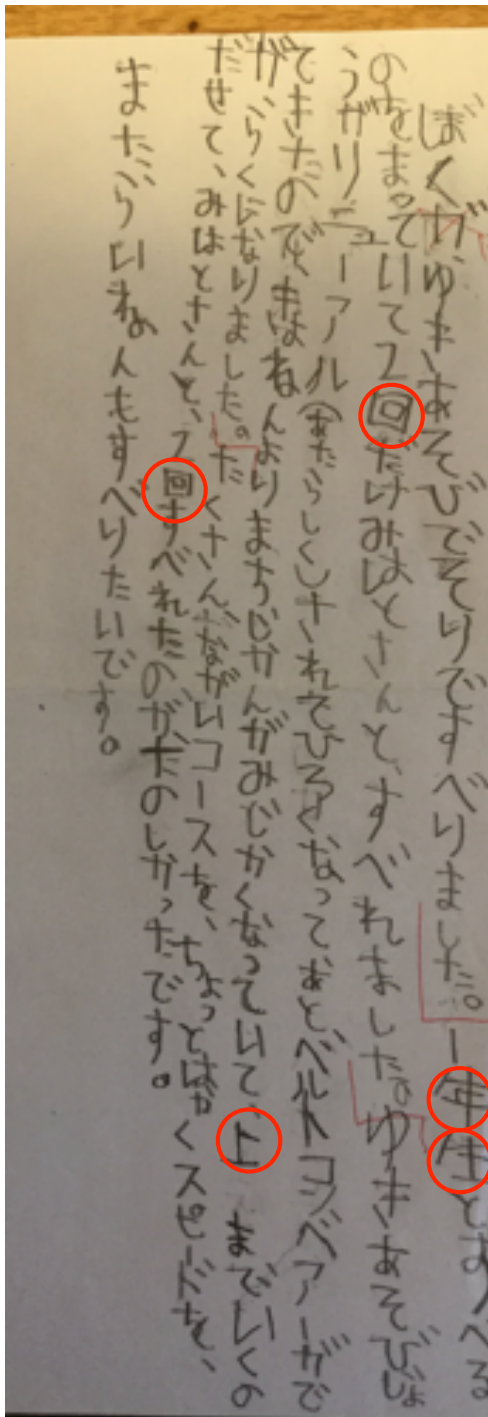 ぼくが、ゆきあそびでそりですべりました。一年生とすべる
のをまっていて2回だけみはとさんと、すべれました。ゆきあそびじょ
うがリニューアル(あたらしくしされてひろくなってあとベルトコンベアーがで
てきたのできょねんよりまちじかんがみじかくなっていて、上までいくの
が、らくになりました。たくさんながいコースを、ちょっとはやくスピードを、
だせて、みはとさんと、2回すべれたのが、たのしかったです。
まだ、らいねんもすべりたいです。